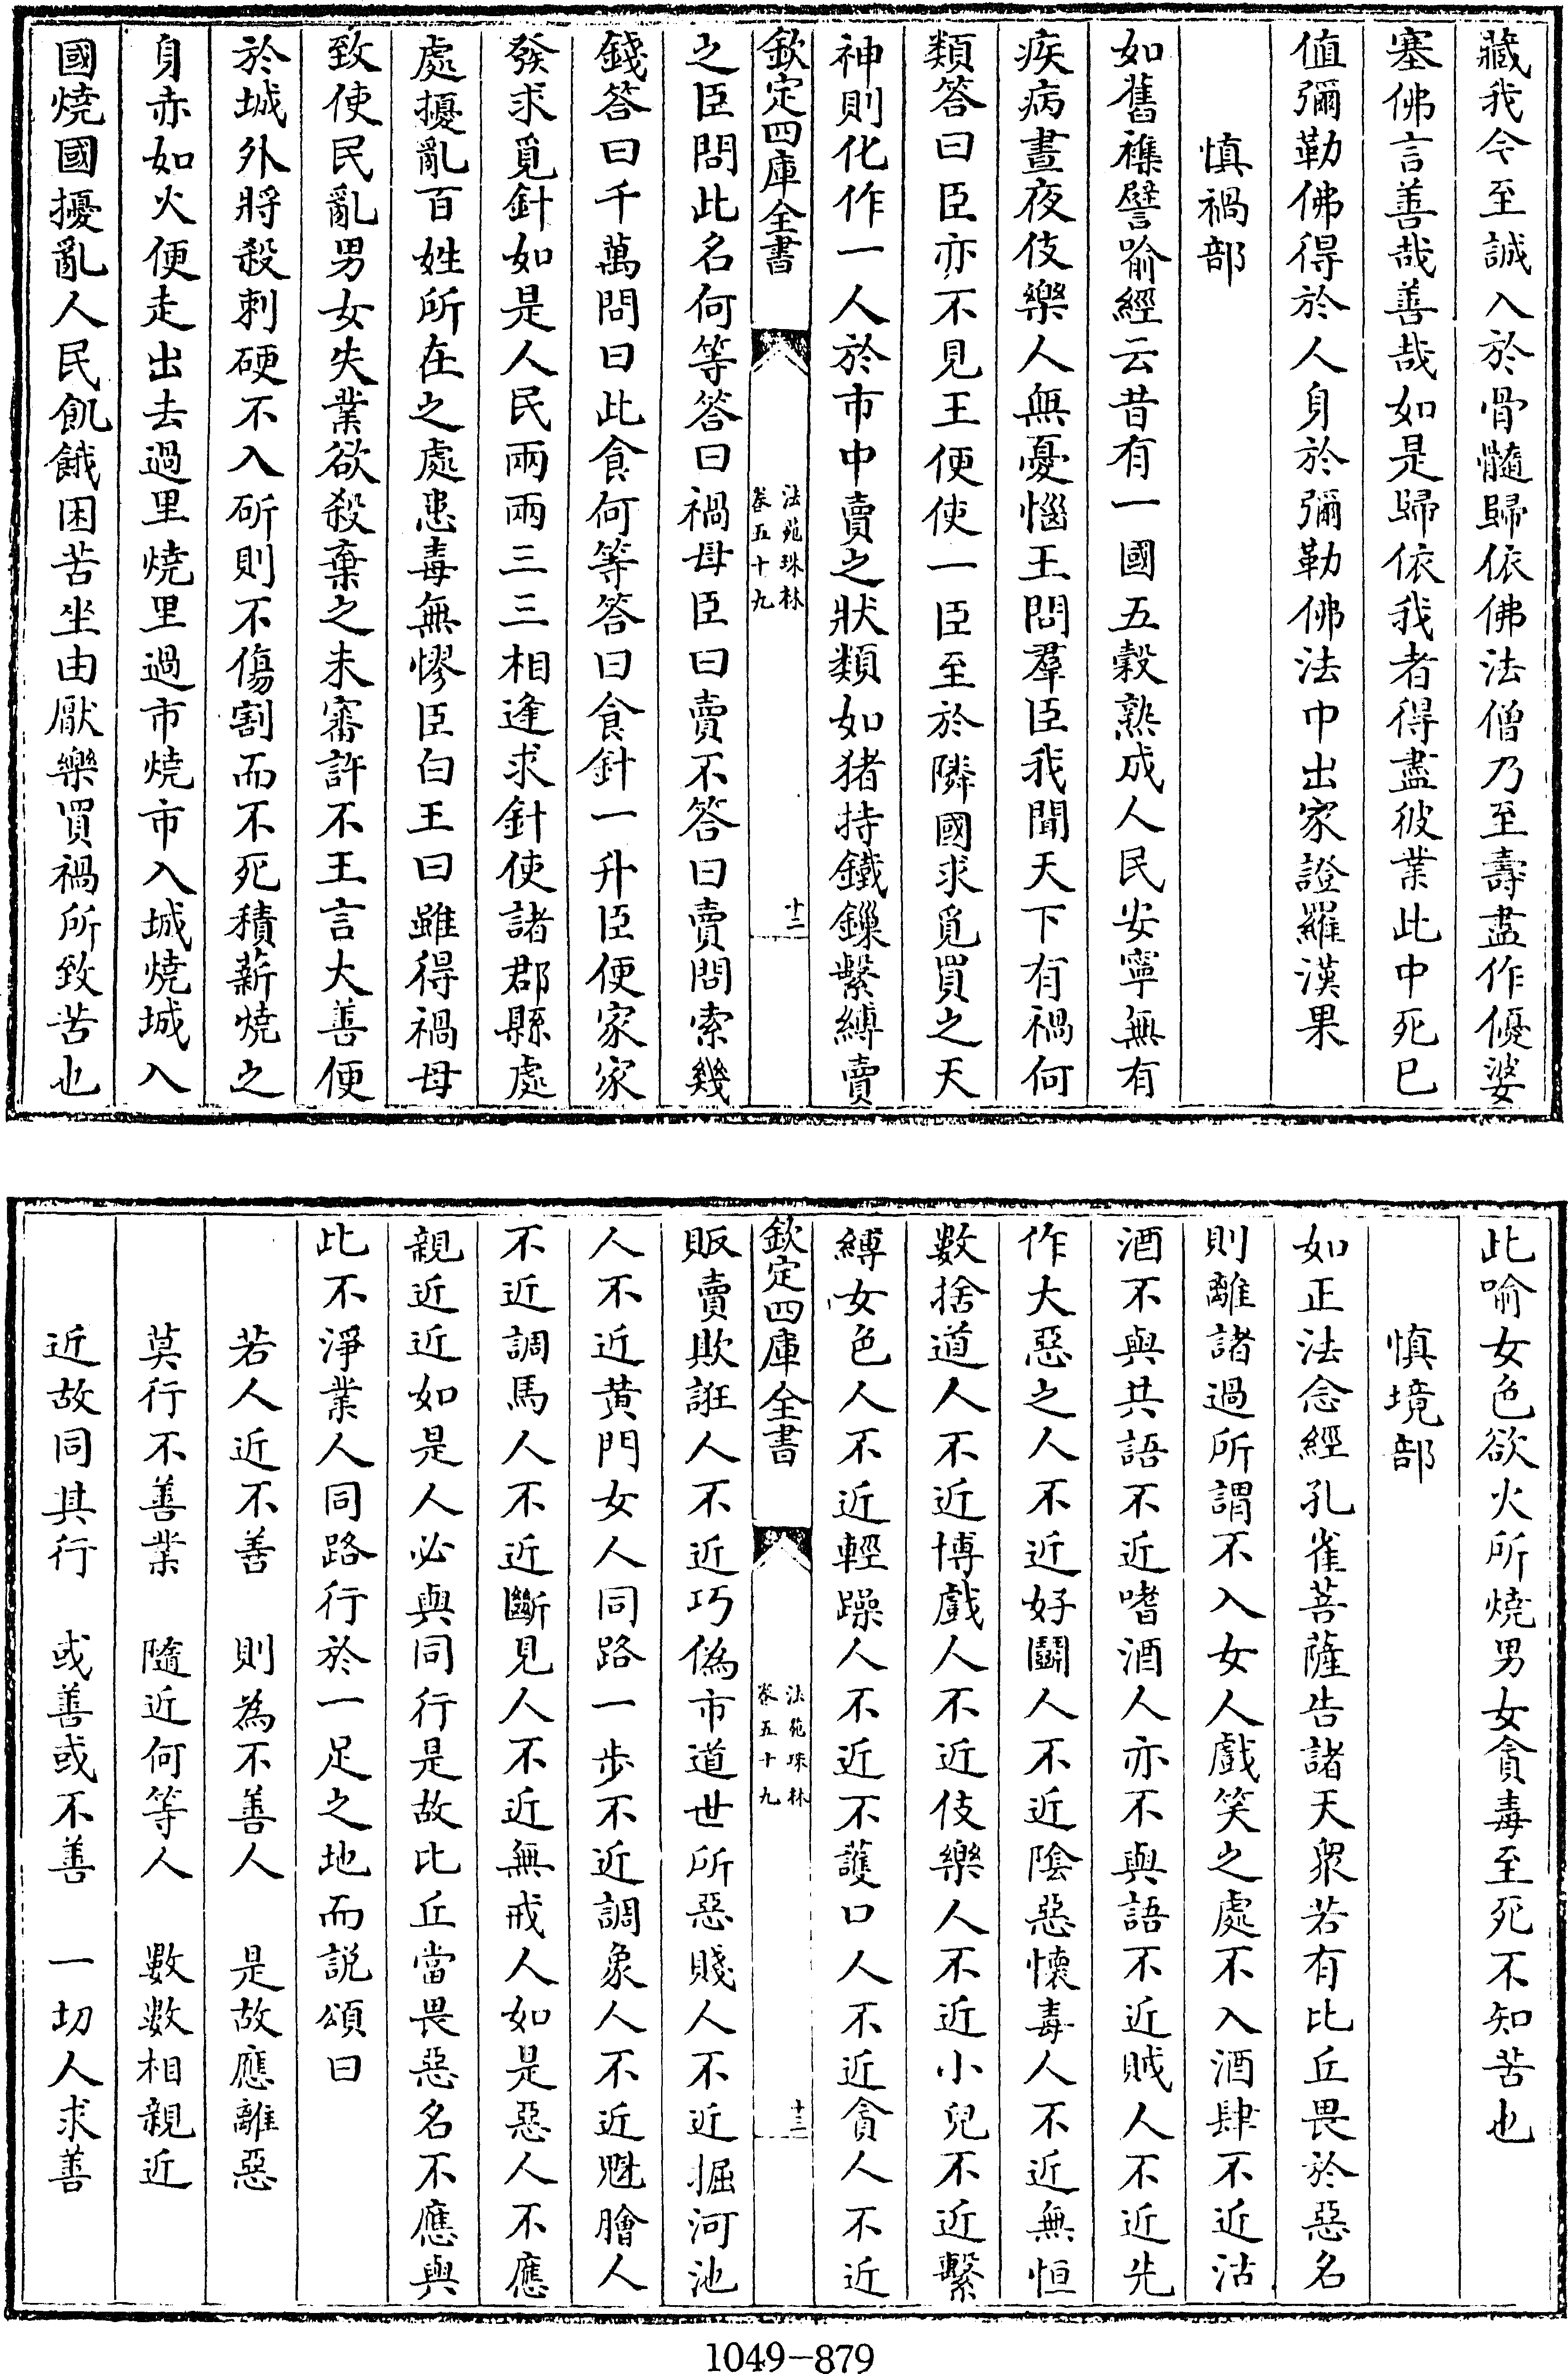 藏我今至誠入於骨髓歸依佛法僧乃至壽盡作優婆
塞佛言善哉善哉如是歸依我者得盡彼業此中死已
值彌勒佛得於人身於彌勒佛法中出家證羅漢果
慎禍部
如舊襍譬喻經云昔有一國五穀熟成人民安寧無有
疾病晝夜伎樂人無憂惱王問羣臣我聞天下有禍何
類答曰臣亦不見王便使一臣至於隣國求覓買之天
神則化作一人於市中賣之狀類如猪持鐵鏁繫縛賣
欽定四庫全書
法苑珠林
卷五十九
十二
之臣問此名何等答曰禍母臣曰賣不答曰賣問索幾
錢答曰千萬問曰此食何等答曰食針一升臣便家家
發求覓針如是人民兩兩三三相逢求針使諸郡縣處
處擾亂百姓所在之處患毒無憀臣白王曰雖得禍母
致使民亂男女失業欲殺棄之未審許不王言大善便
於城外將殺刺硬不入斫則不傷割而不死積薪燒之
身赤如火便走出去過里燒里過市燒市入城燒城入
國燒國擾亂人民飢餓困苦坐由厭樂買禍所致苦也
此喻女色欲火所燒男女貪毒至死不知苦也
慎境部
如正法念經孔雀菩薩告諸天衆若有比丘畏於惡名
則離諸過所謂不入女人戲笑之處不入酒肆不近沽
酒不與共語不近嗜酒人亦不與語不近賊人不近先
作大惡之人不近好鬬人不近陰惡懷毒人不近無恒
數捨道人不近博戲人不近伎樂人不近小兒不近繫
縛女色人不近輕躁人不近不護口人不近貪人不近
欽定四庫全書
法苑珠林
卷五十九
十三
販賣欺誑人不近巧偽市道世所惡賤人不近掘河池
人不近黃門女人同路一步不近調象人不近魁膾人
不近調馬人不近斷見人不近無戒人如是惡人不應
親近近如是人必與同行是故比丘當畏惡名不應與
此不淨業人同路行於一足之地而說頌曰
若人近不善　則為不善人　是故應離惡
莫行不善業　隨近何等人　數數相親近
近故同其行　或善或不善　一切人求善
1049-879